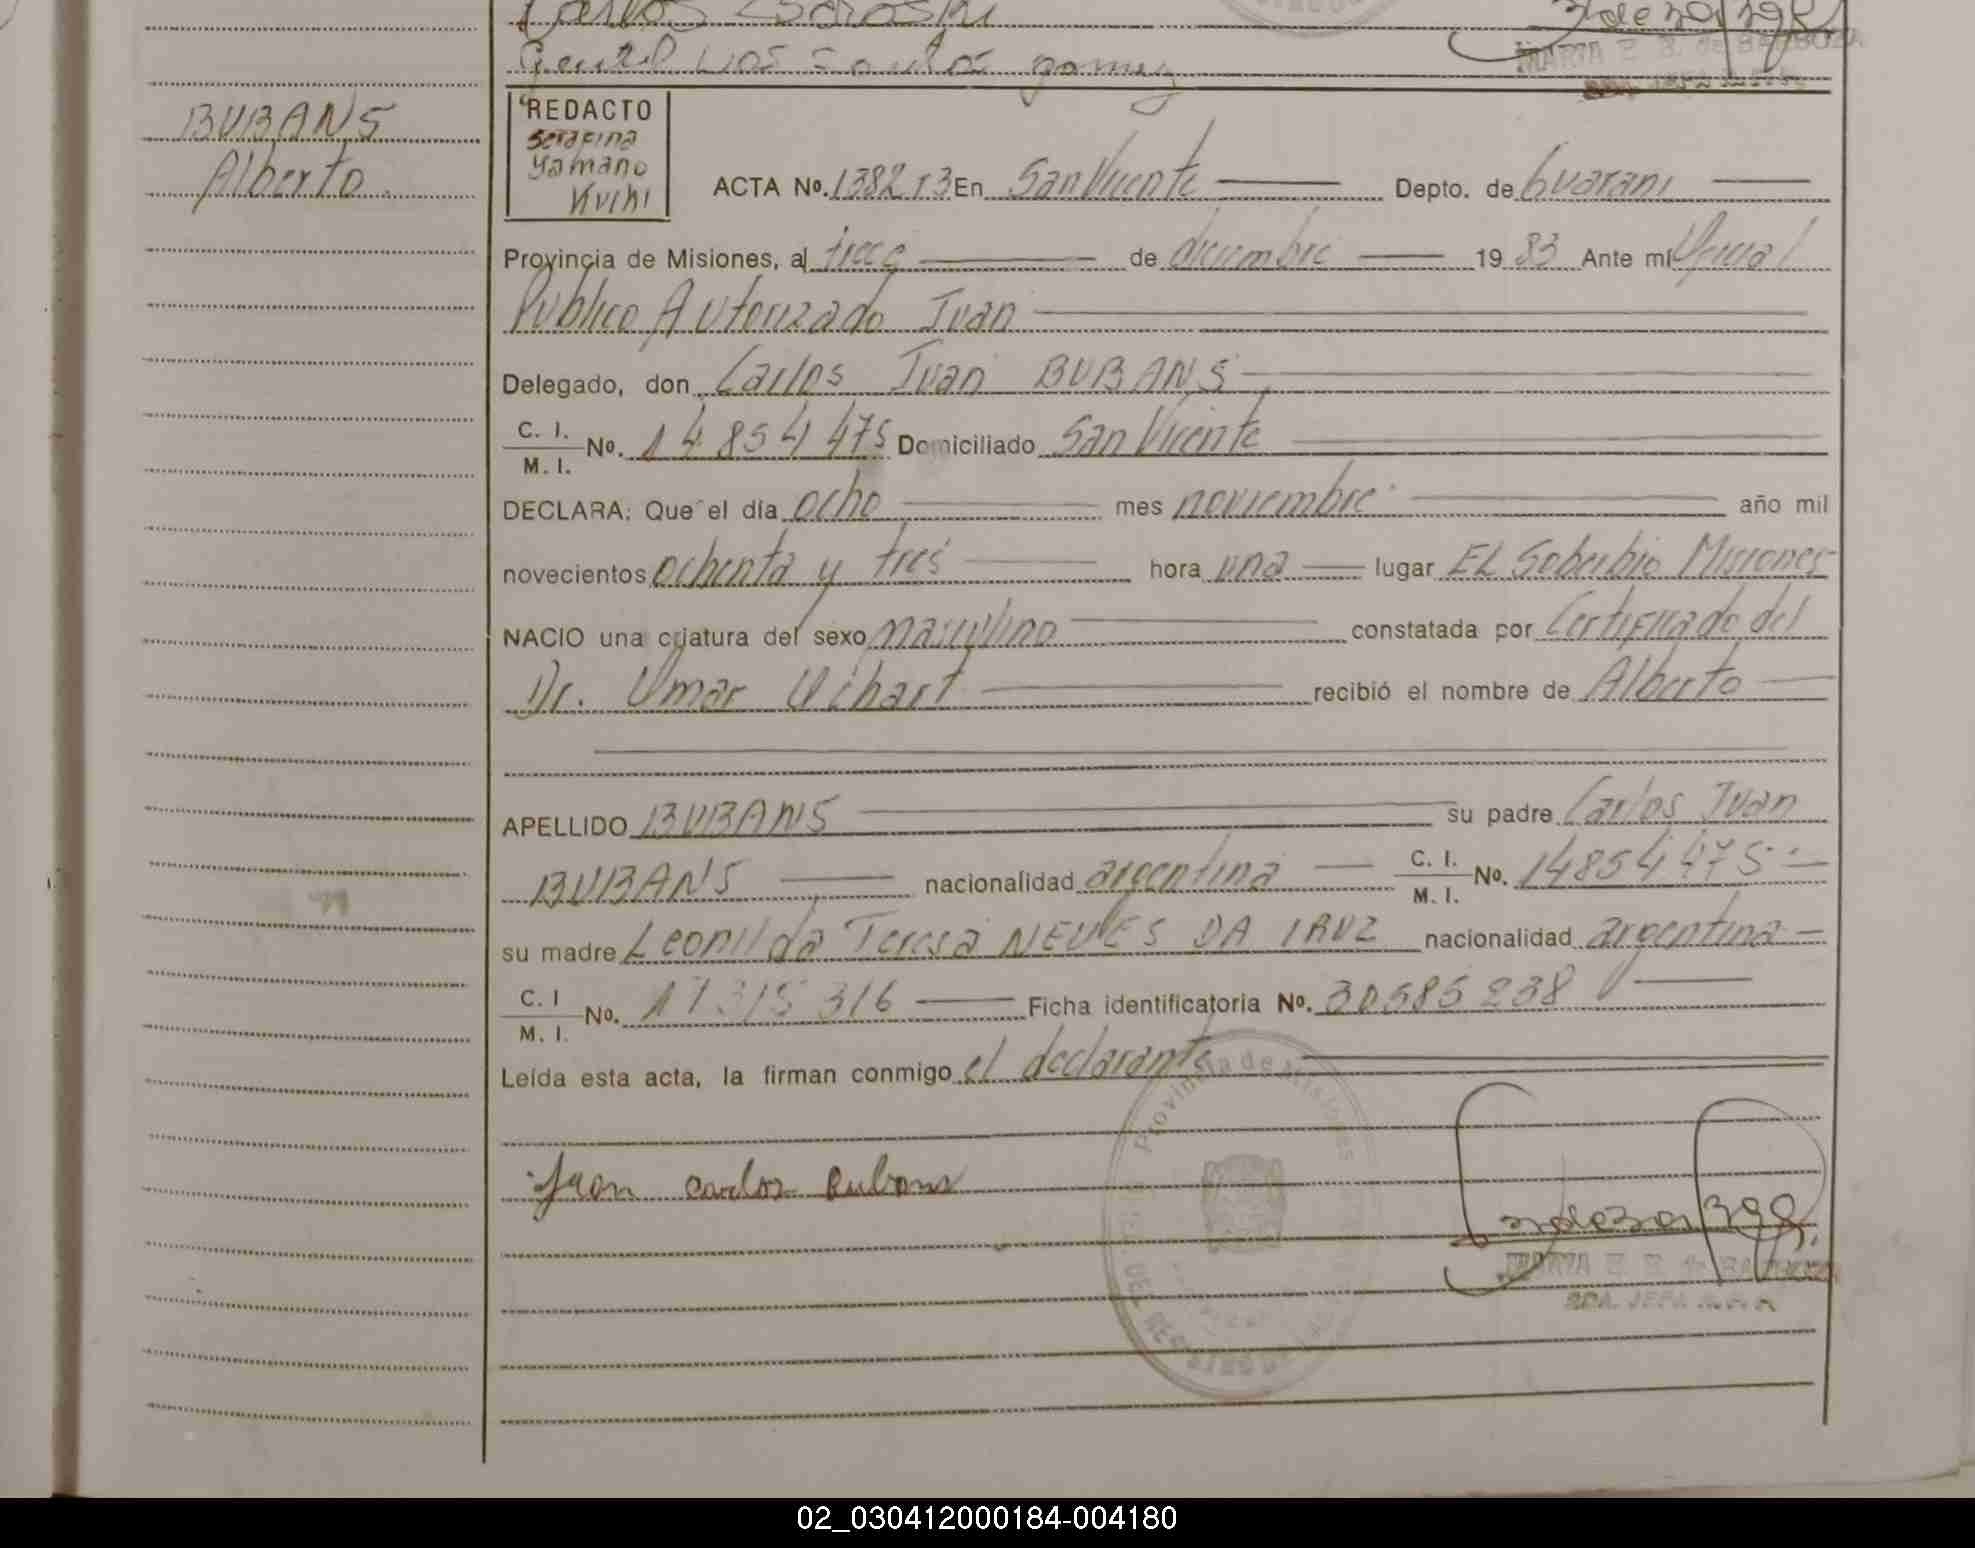 Gentil Dos Santos gomez
MARIA E. B. de BARBOZA
BUBANS
Alberto
REDACTO
Serafina
Yamano
Kviki
ACTA Nº. 1382 T3 En San Vicente Depto. de Guarani
Provincia de Misiones, al trece de diciembre 19 83 Ante mi Oficial
Publico Autorizado Juan
Delegado, don Carlos Juan BUBANS
C. I.
M. I. Nº. 14 854 475 Domiciliado San Vicente
DECLARA: Que el día ocho mes noviembre año mil
novecientos ochenta y tres hora una lugar EL Soberbio Misiones
NACIO una criatura del sexo masculino constatada por Certificado del
Dr. Omar recibió el nombre de Alberto
APELLIDO BUBANS su padre Carlos Juan
BUBANS nacionalidad argentina C. I.
M. I. Nº. 14854475
su madre Leonilda Teresa NEVES DA CRUZ nacionalidad argentina
C. I
M. I. Nº. 17 315 316 Ficha identificatoria Nº. 30585238
Leída esta acta, la firman conmigo el declarante
Provincia de Misiones
Juan Carlos Bubans
MARIA E. B. de BARBOZA
02_030412000184-004180